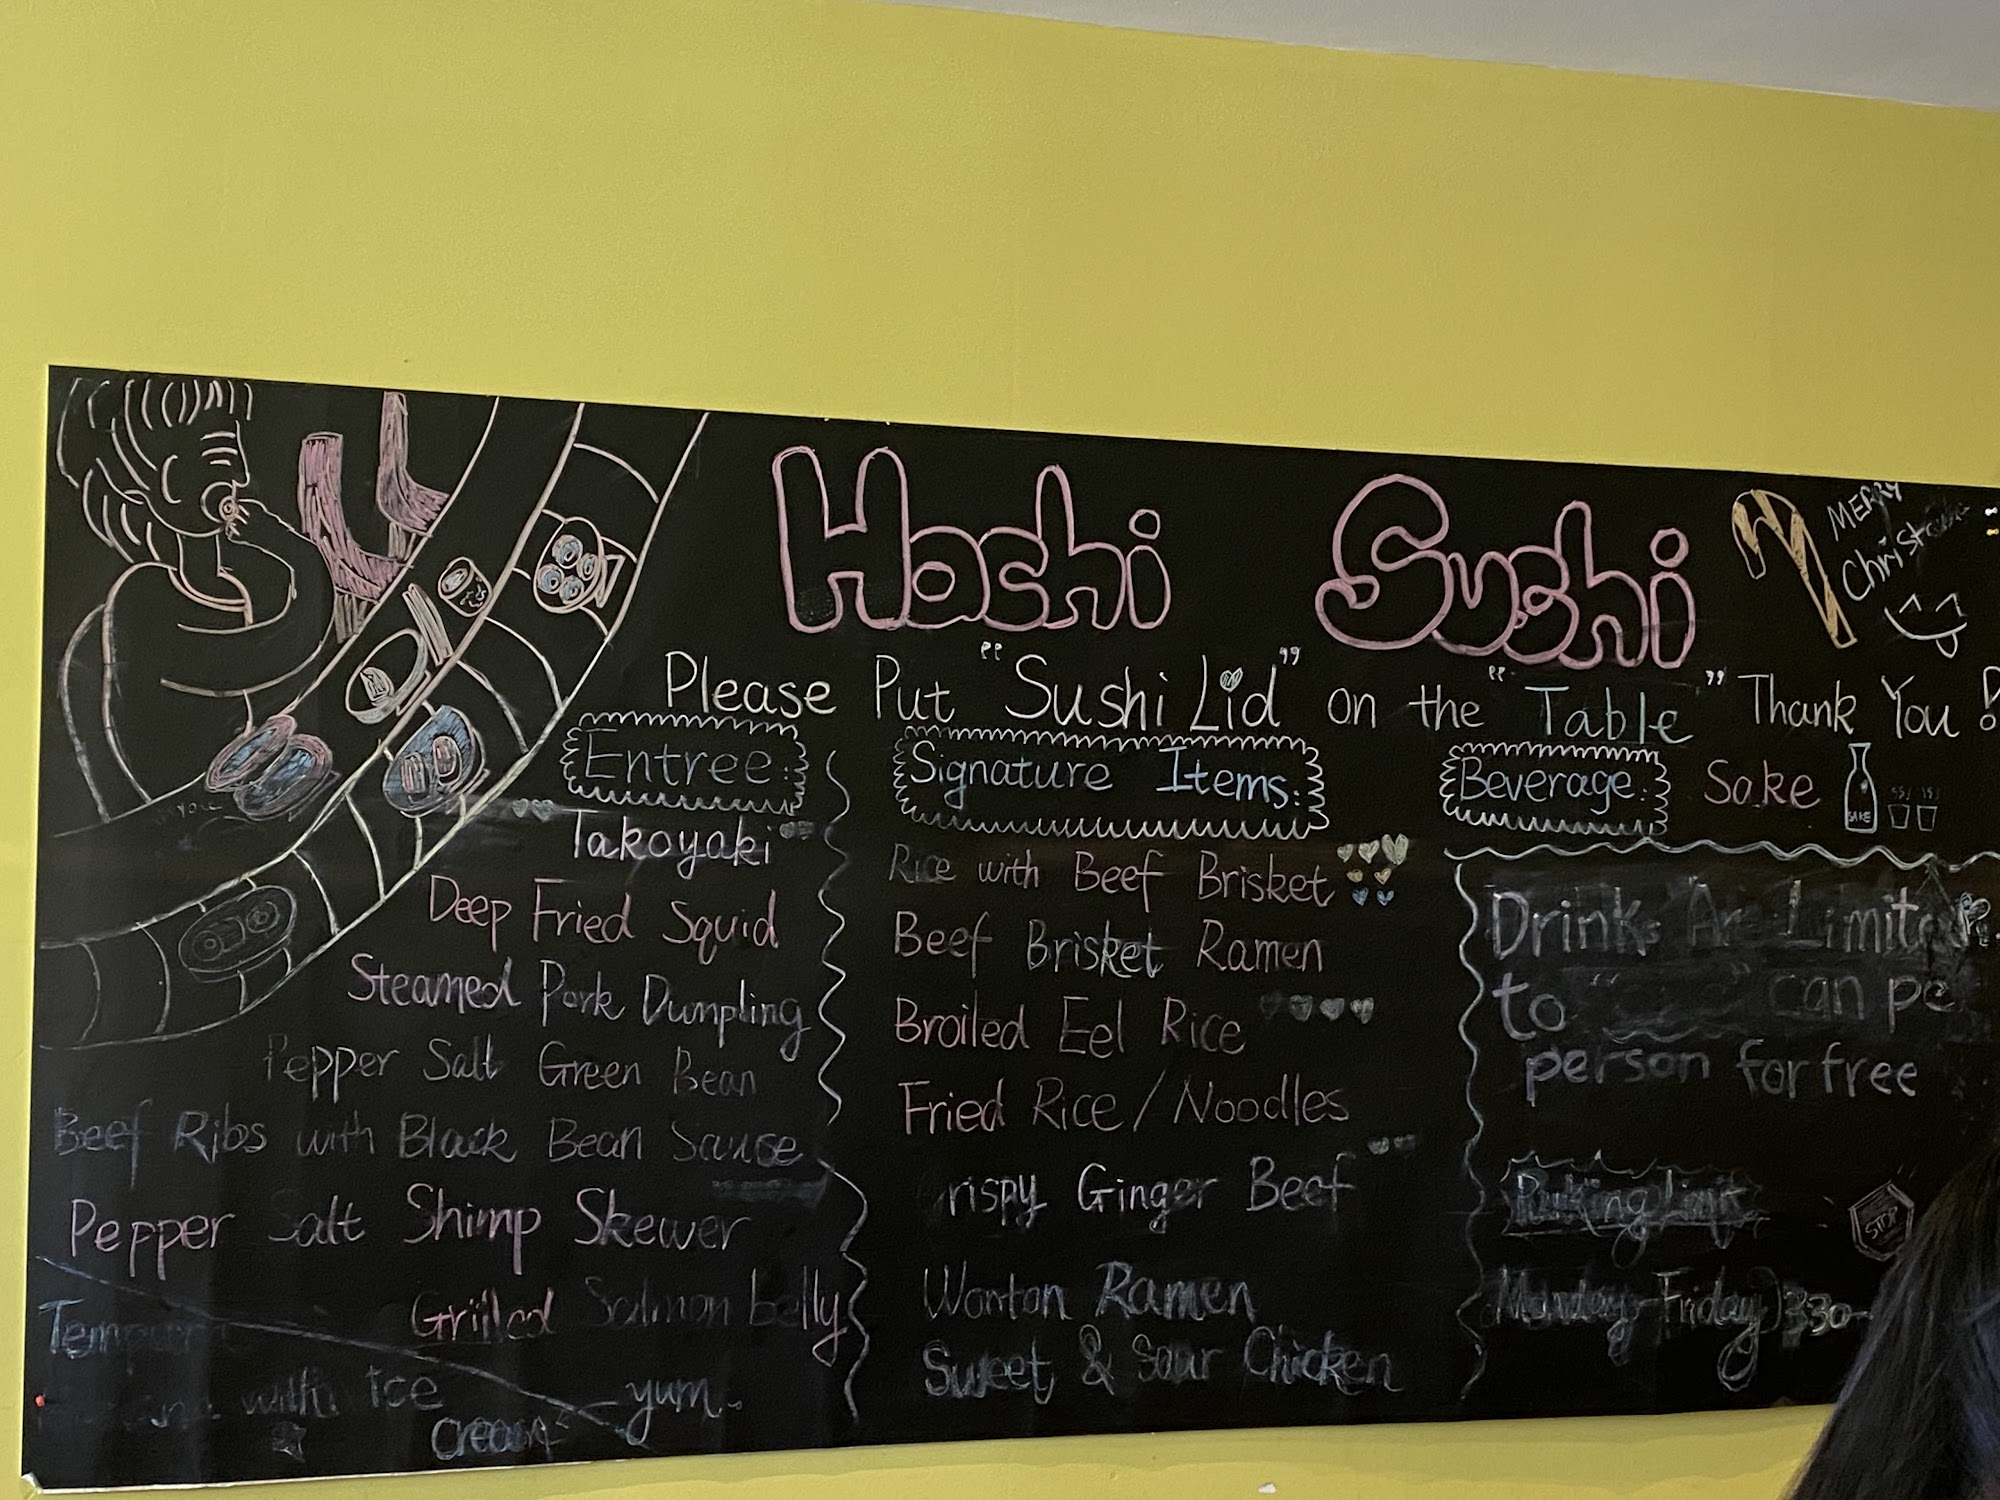 Hachi Sushi
MERRY
Christmas
Please Put "Sushi Lid" on the "Table" Thank You!
Entree:
Takoyaki
Deep Fried Squid
Steamed Pork Dumpling
Pepper Salt Green Bean
Beef Ribs with Black Bean Sauce
Pepper Salt Shimp Skewer
Grilled Salmon belly
Tempura
with Ice
cream yum.
Signature Items:
Rice with Beef Brisket
Beef Brisket Ramen
Broiled Eel Rice
Fried Rice / Noodles
Crispy Ginger Beef
Wonton Ramen
Sweet & Sour Chicken
Beverage: Sake
SAKE
Drinks Are Limited
to can pe
person for free
Parking Limit
STOP
Monday-Friday 330-